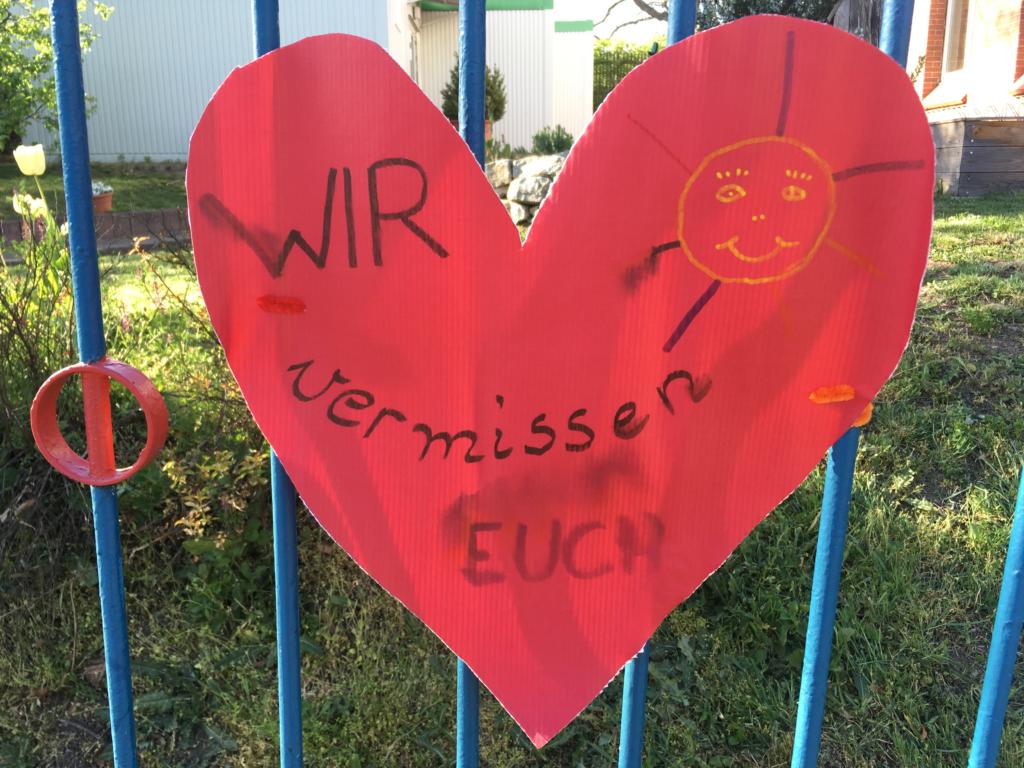 WIR
vermissen
EUCH